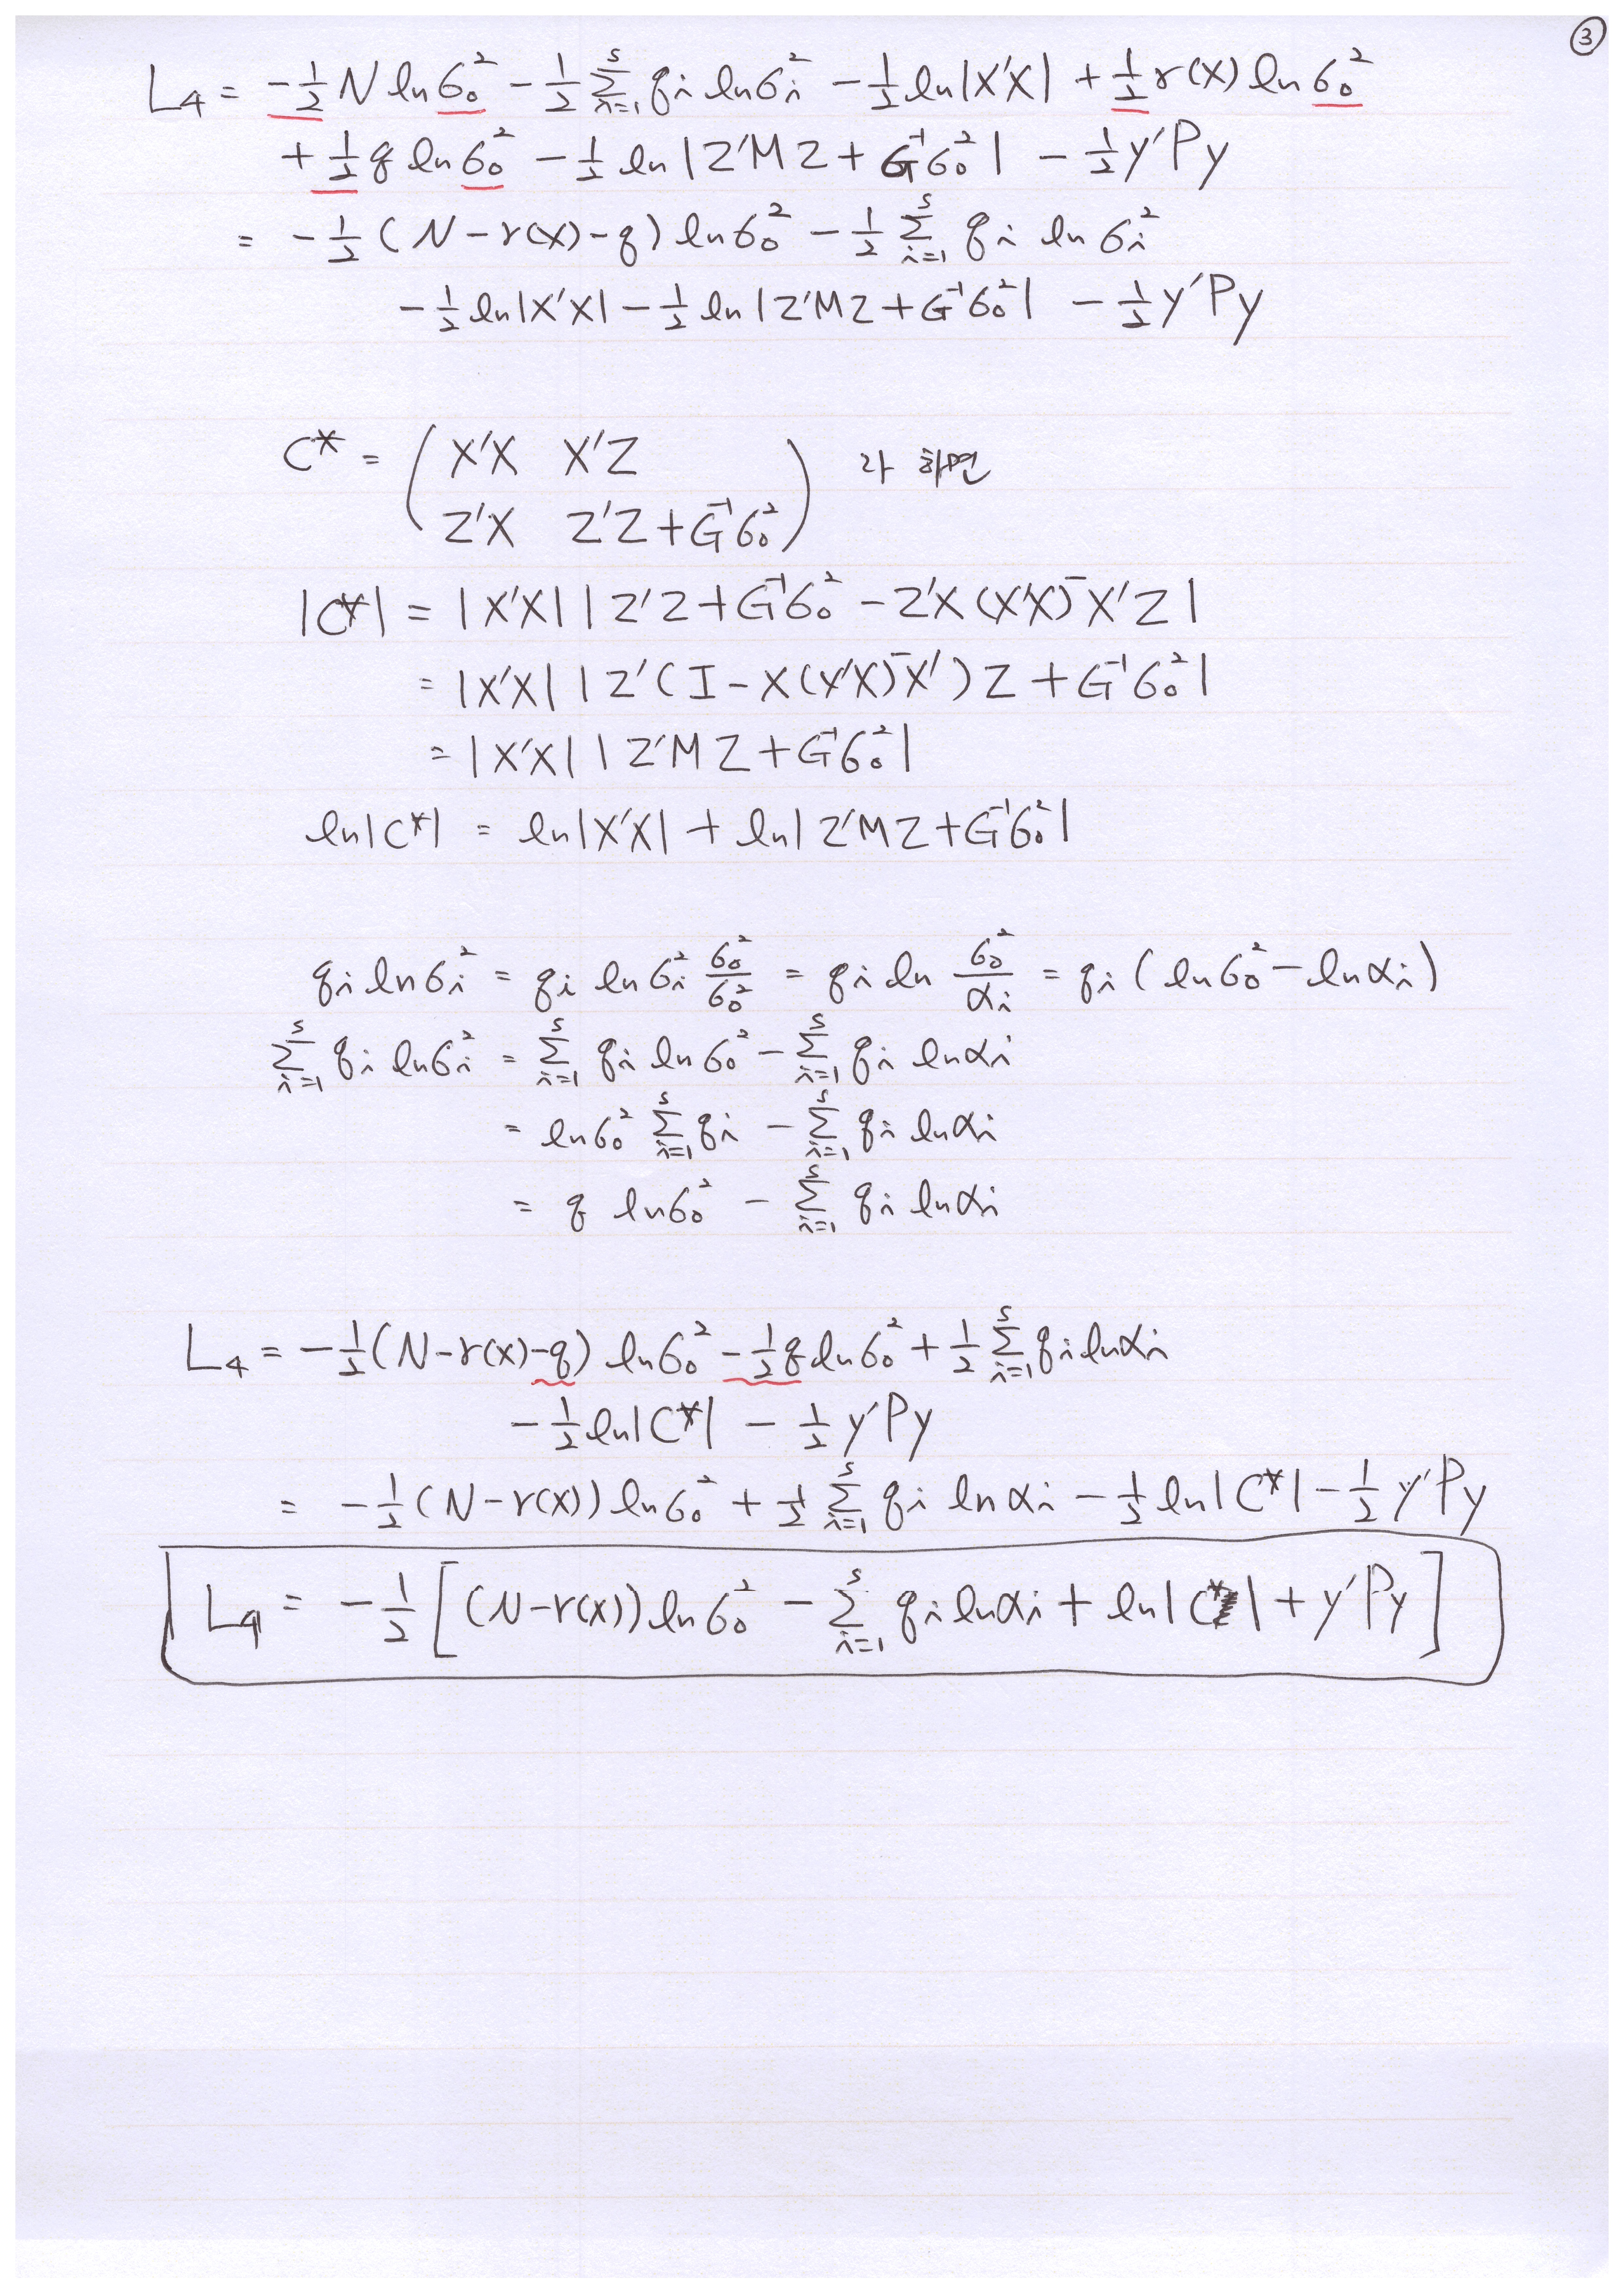 ③
L₄ = -½ N ln σ₀² - ½ Σᵢ₌₁ˢ qᵢ ln σᵢ² - ½ ln|X′X| + ½ r(X) ln σ₀²
+ ½ q ln σ₀² - ½ ln |Z′MZ + G⁻¹σ₀²| - ½ y′Py
= -½ (N - r(X) - q) ln σ₀² - ½ Σᵢ₌₁ˢ qᵢ ln σᵢ²
- ½ ln|X′X| - ½ ln |Z′MZ + G⁻¹σ₀²| - ½ y′Py
C* = ( X′X X′Z
Z′X Z′Z + G⁻¹σ₀² ) 라 하면
|C*| = |X′X| |Z′Z + G⁻¹σ₀² - Z′X (X′X)⁻ X′Z|
= |X′X| |Z′(I - X(X′X)⁻X′)Z + G⁻¹σ₀²|
= |X′X| |Z′MZ + G⁻¹σ₀²|
ln|C*| = ln|X′X| + ln|Z′MZ + G⁻¹σ₀²|
qᵢ ln σᵢ² = qᵢ ln σᵢ² σ₀²/σ₀² = qᵢ ln σ₀²/αᵢ = qᵢ (ln σ₀² - ln αᵢ)
Σᵢ₌₁ˢ qᵢ ln σᵢ² = Σᵢ₌₁ˢ qᵢ ln σ₀² - Σᵢ₌₁ˢ qᵢ ln αᵢ
= ln σ₀² Σᵢ₌₁ˢ qᵢ - Σᵢ₌₁ˢ qᵢ ln αᵢ
= q ln σ₀² - Σᵢ₌₁ˢ qᵢ ln αᵢ
L₄ = -½ (N - r(X) - q) ln σ₀² - ½ q ln σ₀² + ½ Σᵢ₌₁ˢ qᵢ ln αᵢ
- ½ ln|C*| - ½ y′Py
= -½ (N - r(X)) ln σ₀² + ½ Σᵢ₌₁ˢ qᵢ ln αᵢ - ½ ln|C*| - ½ y′Py
L₄ = -½ [(N - r(X)) ln σ₀² - Σᵢ₌₁ˢ qᵢ ln αᵢ + ln|C*| + y′Py]